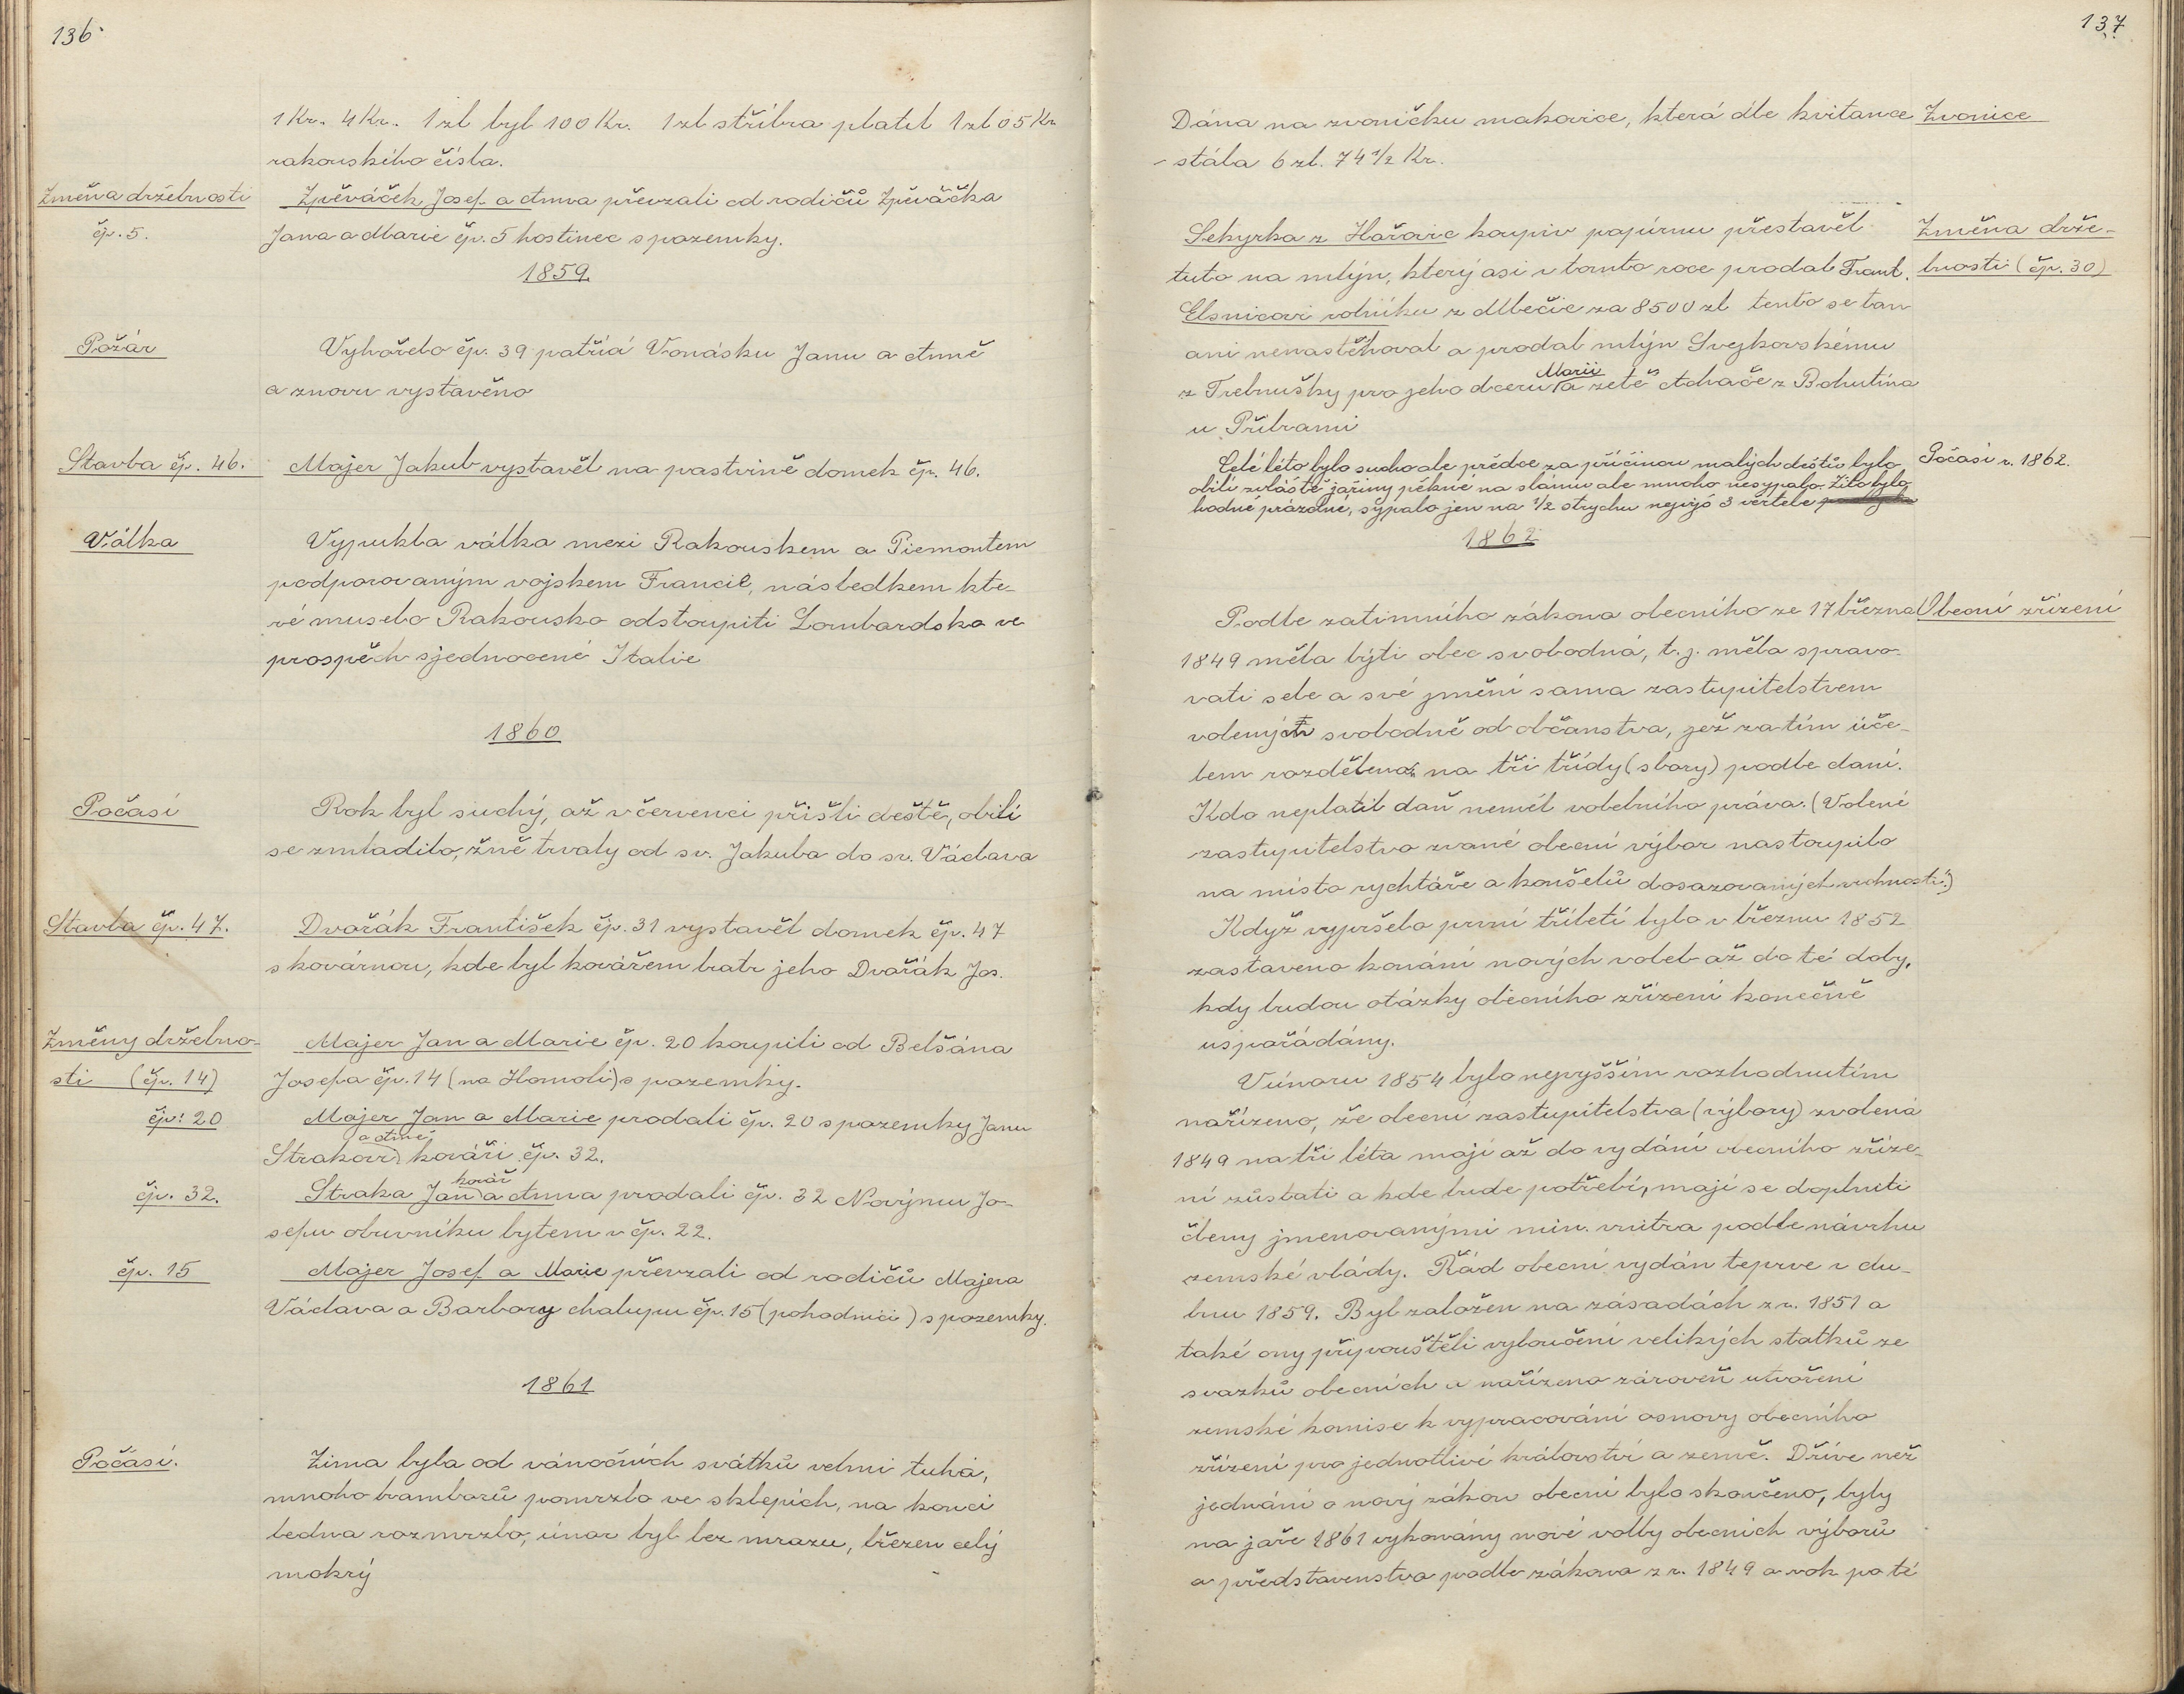 136
1 Kr. 4 Kr. 1 zl byl 100 Kr. 1 zl stříbra platil 1 zl 05 Kr
rakouského čísla.
Změna držebnosti
čp. 5.
Zpěváček Josef a Anna převzali od rodičů Zpěváčka
Jana a Marie čp. 5 hostinec s pozemky.
1859
Požár
Vyhořelo čp. 39 patřící Vonásku Janu a Anně
a znovu vystavěno
Stavba čp. 46.
Majer Jakub vystavěl na pastvině domek čp. 46.
Válka
Vypukla válka mezi Rakouskem a Piemontem
podporovaným vojskem Francie, následkem kte-
ré muselo Rakousko odstoupiti Lombardsko ve
prospěch sjednocené Italie
1860
Počasí
Rok byl suchý, až v červenci přišli deště, obilí
se zmladilo, žně trvaly od sv. Jakuba do sv. Václava
Stavba čp. 47.
Dvořák František čp. 31 vystavěl domek čp. 47
s kovárnou, kde byl kovářem bratr jeho Dvořák Jos.
Změny držebno-
sti (čp. 14)
Majer Jan a Marie čp. 20 koupili od Belšána
Josefa čp. 14 (na Homoli) s pozemky.
čp. 20
Majer Jan a Marie prodali čp. 20 s pozemky Janu
a Anně
Strakovi kováři čp. 32.
čp. 32.
kovář
Straka Jan a Anna prodali čp. 32 Novýmu Jo-
sefu obuvníku bytem v čp. 22.
čp. 15
Majer Josef a Marie převzali od rodičů Majera
Václava a Barbory chalupu čp. 15 (pohodnici) s pozemky.
1861
Počasí.
Zima byla od vánočních svátků velmi tuhá,
mnoho bramborů pomrzlo ve sklepích, na konci
ledna rozmrzlo, únor byl bez mrazu, březen celý
mokrý
137
Dána na zvoničku makovice, která dle kvitance
stála 6 zl. 74 1/2 Kr.
Zvonice
Sekyrka z Hařovic koupiv papírnu přestavěl
tuto na mlýn, který asi v tomto roce prodal Frant.
Elsnicovi rolníku z Mlečic za 8500 zl tento se tan
ani nenastěhoval a prodal mlýn Svejkovskému
Marii
z Trebnušky pro jeho dceru a zetě Adnače z Bohutína
u Příbrami
Změna drže-
bnosti (čp. 30)
Celé léto bylo sucho ale předce za příčinou malých deštů bylo
obilí zvláště jařiny pěkné na slámu ale mnoho nesypalo. Žito bylo
hodně prázdné, sypalo jen na 1/2 strychu nejvýš 3 věrtele
Počasí r. 1862.
1862
Podle zatimního zákona obecního ze 17 března
1849 měla býti obec svobodná, t. j. měla spravo-
vati sebe a své jmění sama zastupitelstvem
voleným svobodně od občanstva, jež za tím úče-
lem rozděleno na tři třídy (sbory) podle daní.
Kdo neplatil daň neměl volebního práva. (Volené
zastupitelstvo zvané obecní výbor nastoupilo
na místo rychtáře a konšelů dosazovaných vrchností.)
Obecní zřízení
Když vypršelo první tříletí bylo v březnu 1852
zastaveno konání nových voleb až do té doby,
kdy budou otázky obecního zřízení konečně
uspořádány.
V únoru 1854 bylo nejvyšším rozhodnutím
nařízeno, že obecní zastupitelstva (výbory) zvolená
1849 na tři léta mají až do vydání obecního zříze-
ní zůstati a kde bude potřebí, mají se doplniti
členy jmenovanými min. vnitra podle návrhu
zemské vlády. Řád obecní vydán teprve v du-
bnu 1859. Byl založen na zásadách z r. 1851 a
také ony připouštěli vyloučení velikých statků ze
svazků obecních a nařízeno zároveň utvoření
zemské komise k vypracování osnovy obecního
zřízení pro jednotlivé království a země. Dříve než
jednání o nový zákon obecní bylo skončeno, byly
na jaře 1861 vykonány nové volby obecních výborů
a představenstva podle zákona z r. 1849 a rok po té